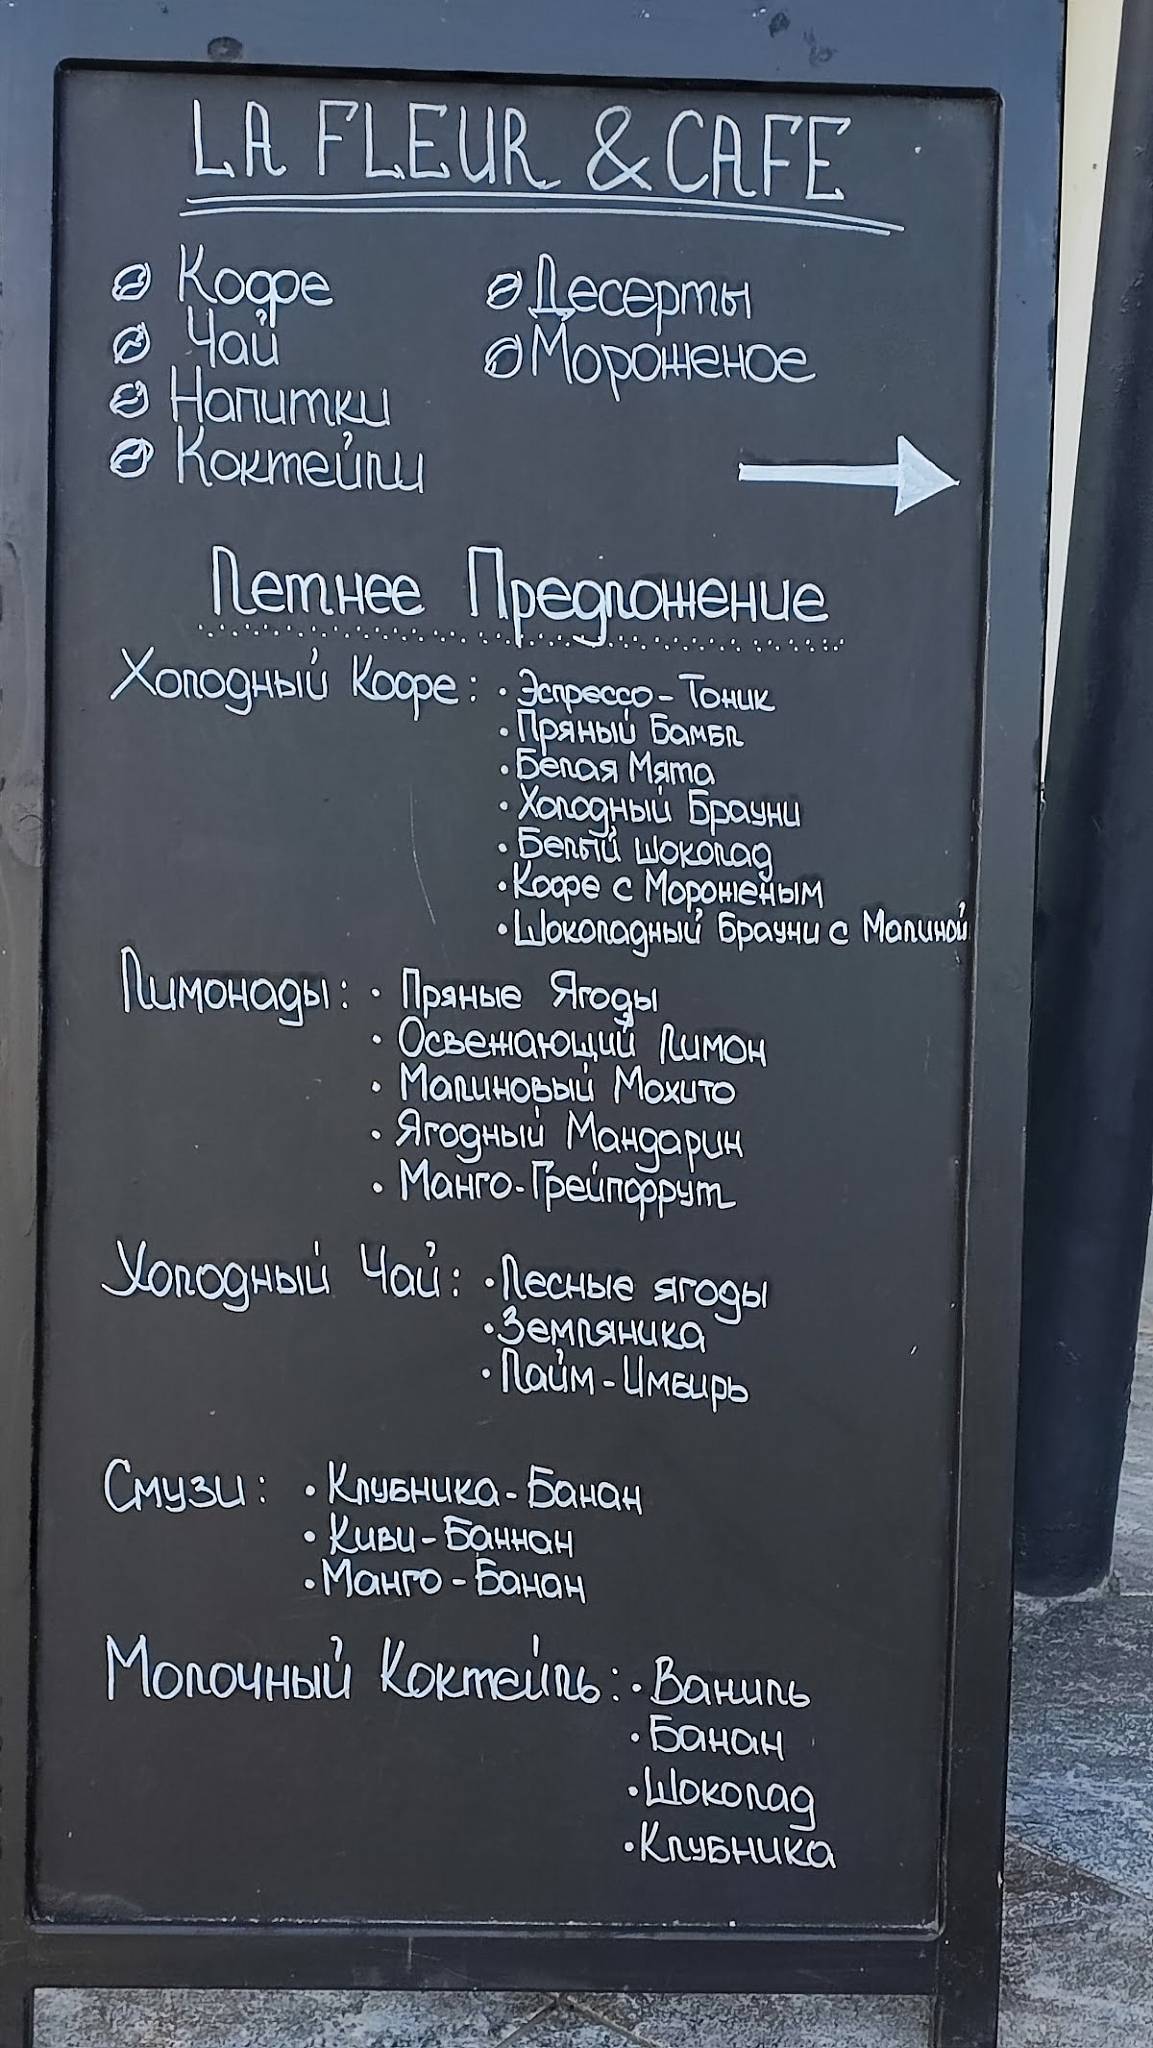 LA FLEUR & CAFE
Кофе
Чай
Напитки
Коктейли
Десерты
Мороженое
Летнее Предложение
Холодный Кофе: · Эспрессо-Тоник
· Пряный Бамбл
· Белая Мята
· Холодный Брауни
· Белый шоколад
· Кофе с Мороженым
· Шоколадный Брауни с Малиной
Лимонады: · Пряные Ягоды
· Освежающий Лимон
· Малиновый Мохито
· Ягодный Мандарин
· Манго-Грейпфрут
Холодный Чай: · Лесные ягоды
· Земляника
· Лайм-Имбирь
Смузи: · Клубника-Банан
· Киви-Баннан
· Манго-Банан
Молочный Коктейль: · Ваниль
· Банан
· Шоколад
· Клубника